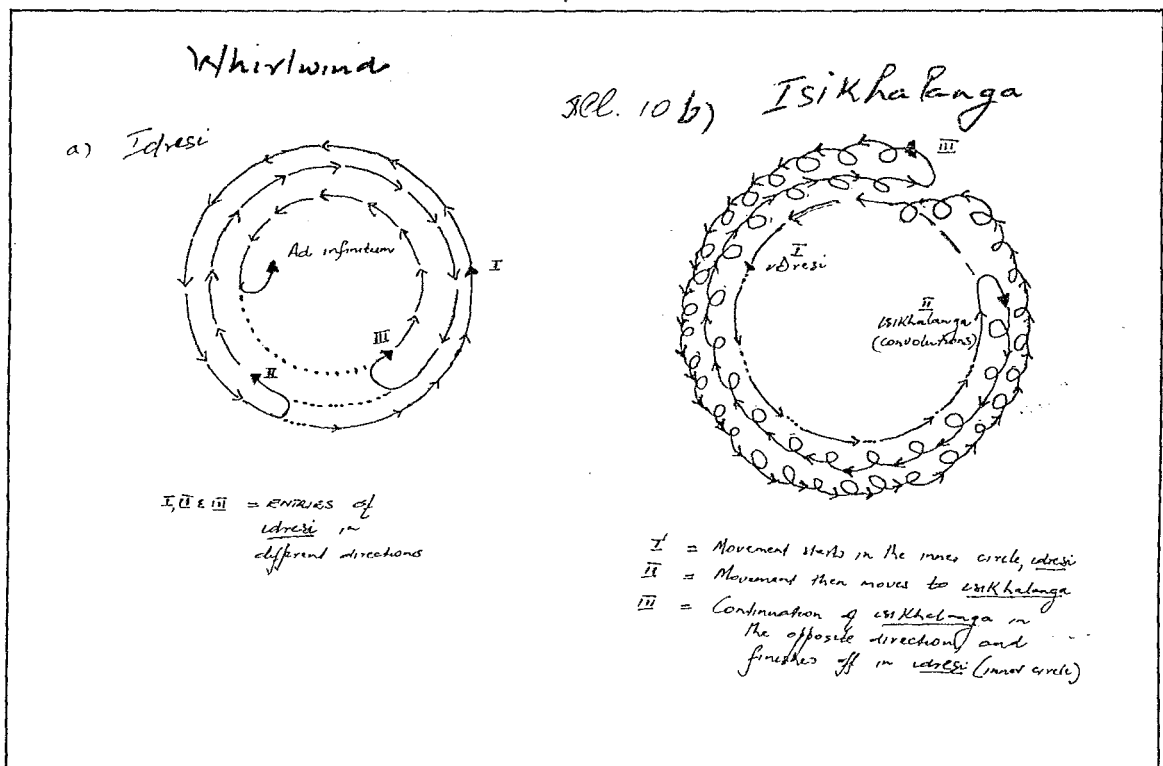 Whirlwind
a) Idresi
I
Ad infinitum
III
II
I, II & III = ENTRIES of
idresi in
different directions
Ill. 10 b) Isikhalanga
III
I
idresi
II
isikhalanga
(convolutions)
I = Movement starts in the inner circle, idresi
II = Movement then moves to isikhalanga
III = Continuation of isikhalanga in
the opposite direction, and
finishes off in idresi (inner circle)